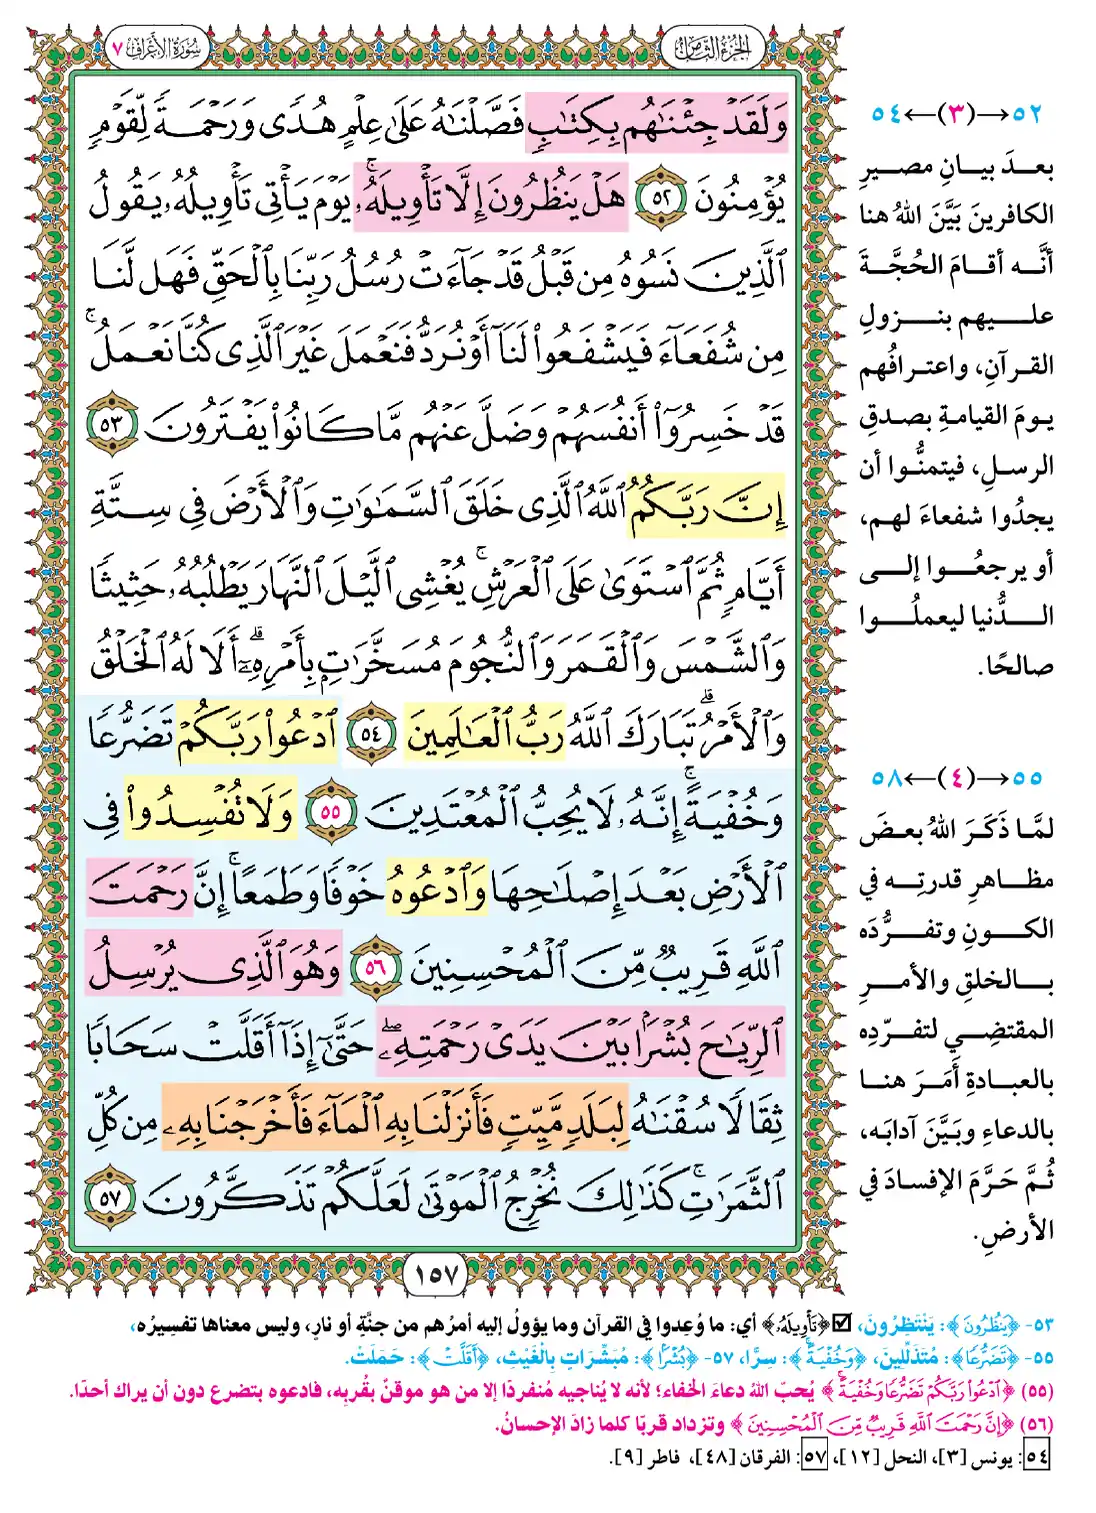 سُورَةُ الأَعْرَافِ ٧
الجُزْءُ الثَّامِنُ
وَلَقَدْ جِئْنَٰهُم بِكِتَٰبٍ فَصَّلْنَٰهُ عَلَىٰ عِلْمٍ هُدًى وَرَحْمَةً لِّقَوْمٍ
يُؤْمِنُونَ ٥٢ هَلْ يَنظُرُونَ إِلَّا تَأْوِيلَهُۥ ۚ يَوْمَ يَأْتِى تَأْوِيلُهُۥ يَقُولُ
ٱلَّذِينَ نَسُوهُ مِن قَبْلُ قَدْ جَآءَتْ رُسُلُ رَبِّنَا بِٱلْحَقِّ فَهَل لَّنَا
مِن شُفَعَآءَ فَيَشْفَعُوا۟ لَنَآ أَوْ نُرَدُّ فَنَعْمَلَ غَيْرَ ٱلَّذِى كُنَّا نَعْمَلُ ۚ
قَدْ خَسِرُوٓا۟ أَنفُسَهُمْ وَضَلَّ عَنْهُم مَّا كَانُوا۟ يَفْتَرُونَ ٥٣
إِنَّ رَبَّكُمُ ٱللَّهُ ٱلَّذِى خَلَقَ ٱلسَّمَٰوَٰتِ وَٱلْأَرْضَ فِى سِتَّةِ
أَيَّامٍ ثُمَّ ٱسْتَوَىٰ عَلَى ٱلْعَرْشِ ۚ يُغْشِى ٱلَّيْلَ ٱلنَّهَارَ يَطْلُبُهُۥ حَثِيثًا
وَٱلشَّمْسَ وَٱلْقَمَرَ وَٱلنُّجُومَ مُسَخَّرَٰتٍۭ بِأَمْرِهِۦٓ ۗ أَلَا لَهُ ٱلْخَلْقُ
وَٱلْأَمْرُ ۗ تَبَارَكَ ٱللَّهُ رَبُّ ٱلْعَٰلَمِينَ ٥٤ ٱدْعُوا۟ رَبَّكُمْ تَضَرُّعًا
وَخُفْيَةً ۚ إِنَّهُۥ لَا يُحِبُّ ٱلْمُعْتَدِينَ ٥٥ وَلَا تُفْسِدُوا۟ فِى
ٱلْأَرْضِ بَعْدَ إِصْلَٰحِهَا وَٱدْعُوهُ خَوْفًا وَطَمَعًا ۚ إِنَّ رَحْمَتَ
ٱللَّهِ قَرِيبٌ مِّنَ ٱلْمُحْسِنِينَ ٥٦ وَهُوَ ٱلَّذِى يُرْسِلُ
ٱلرِّيَٰحَ بُشْرًۢا بَيْنَ يَدَىْ رَحْمَتِهِۦ ۖ حَتَّىٰٓ إِذَآ أَقَلَّتْ سَحَابًا
ثِقَالًا سُقْنَٰهُ لِبَلَدٍ مَّيِّتٍ فَأَنزَلْنَا بِهِ ٱلْمَآءَ فَأَخْرَجْنَا بِهِۦ مِن كُلِّ
ٱلثَّمَرَٰتِ ۚ كَذَٰلِكَ نُخْرِجُ ٱلْمَوْتَىٰ لَعَلَّكُمْ تَذَكَّرُونَ ٥٧
١٥٧
٥٢→(٣)←٥٤
بعدَ بيانِ مصيرِ
الكافرينَ بَيَّنَ اللهُ هنا
أنَّه أقامَ الحُجَّةَ
عليهم بنزولِ
القرآنِ، واعترافُهم
يومَ القيامةِ بصدقِ
الرسلِ، فيتمنُّوا أن
يجدُوا شفعاءَ لهم،
أو يرجعُوا إلى
الدُّنيا ليعملُوا
صالحًا.
٥٥→(٤)←٥٨
لمَّا ذَكَرَ اللهُ بعضَ
مظاهرِ قدرتِه في
الكونِ وتفرُّدَه
بالخلقِ والأمرِ
المقتضِي لتفرّدِه
بالعبادةِ أَمَرَ هنا
بالدعاءِ وبَيَّنَ آدابَه،
ثُمَّ حَرَّمَ الإفسادَ في
الأرضِ.
٥٣- ﴿يَنظُرُونَ﴾: يَنْتَظِرُونَ، ☑﴿تَأْوِيلَهُۥ﴾ أي: ما وُعِدوا في القرآن وما يؤولُ إليه أمرُهم من جنَّةٍ أو نارٍ، وليس معناها تفسِيرُه،
٥٥- ﴿تَضَرُّعًا﴾: مُتَذَلِّلِينَ، ﴿وَخُفْيَةً﴾: سِرًّا، ٥٧- ﴿بُشْرًا﴾: مُبَشِّرَاتٍ بِالْغَيْثِ، ﴿أَقَلَّتْ﴾: حَمَلَتْ.
(٥٥) ﴿ٱدْعُوا۟ رَبَّكُمْ تَضَرُّعًا وَخُفْيَةً﴾ يُحبّ اللهُ دعاءَ الخفاء؛ لأنه لا يُناجيه مُنفردًا إلا من هو موقنٌ بقُربِه، فادعوه بتضرع دون أن يراك أحدًا.
(٥٦) ﴿إِنَّ رَحْمَتَ ٱللَّهِ قَرِيبٌ مِّنَ ٱلْمُحْسِنِينَ﴾ وتزداد قربًا كلما زادَ الإحسانُ.
٥٤: يونس [٣]، النحل [١٢]، ٥٧: الفرقان [٤٨]، فاطر [٩].